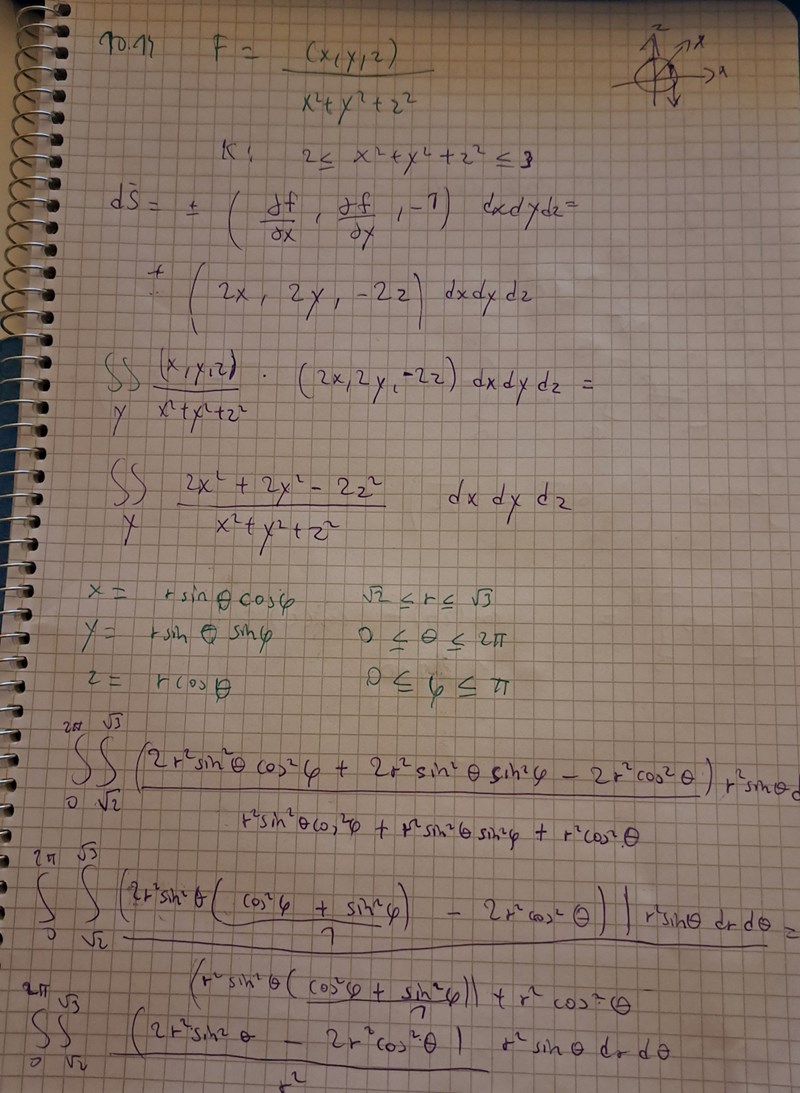 10.14 F = (x,y,z) / x²+y²+z²
z
x
K: 2 ≤ x²+y²+z² ≤ 3
dS̄ = ± (∂f/∂x, ∂f/∂y, -1) dxdydz =
± (2x, 2y, -2z) dxdydz
∬_Y (x,y,z) / x²+y²+z² · (2x,2y,-2z) dxdydz =
∬_Y 2x²+2y²-2z² / x²+y²+z² dx dy dz
x = r sinθ cosφ √2 ≤ r ≤ √3
y = r sin θ sinφ 0 ≤ θ ≤ 2π
z = r cosθ 0 ≤ φ ≤ π
∫_0^2π ∫_√2^√3 (2r²sin²θ cos²φ + 2r²sin²θ sin²φ - 2r²cos²θ) r²sinθ d
r²sin²θcos²φ + r²sin²θsin²φ + r²cos²θ
∫_0^2π ∫_√2^√3 (2r²sin²θ (cos²φ + sin²φ) - 2r²cos²θ) | r²sinθ drdθ =
1
(r²sin²θ (cos²φ + sin²φ)) + r² cos²θ
1
∫_0^2π ∫_√2^√3 (2r²sin²θ - 2r²cos²θ) r²sinθ dr dθ
r²